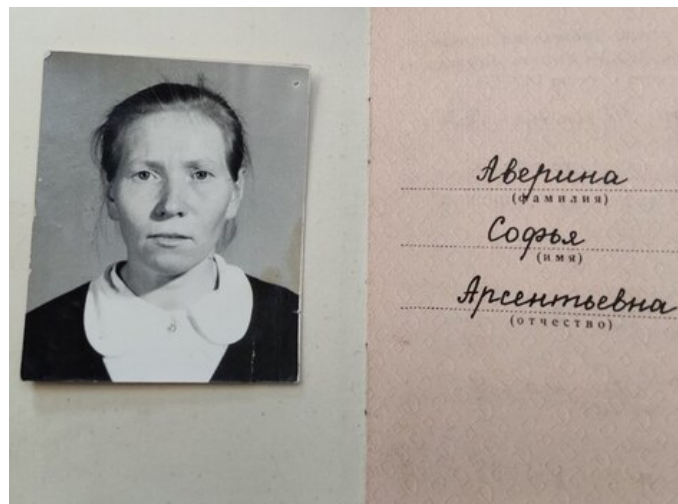 Аверина
(фамилия)
Софья
(имя)
Арсентьевна
(отчество)